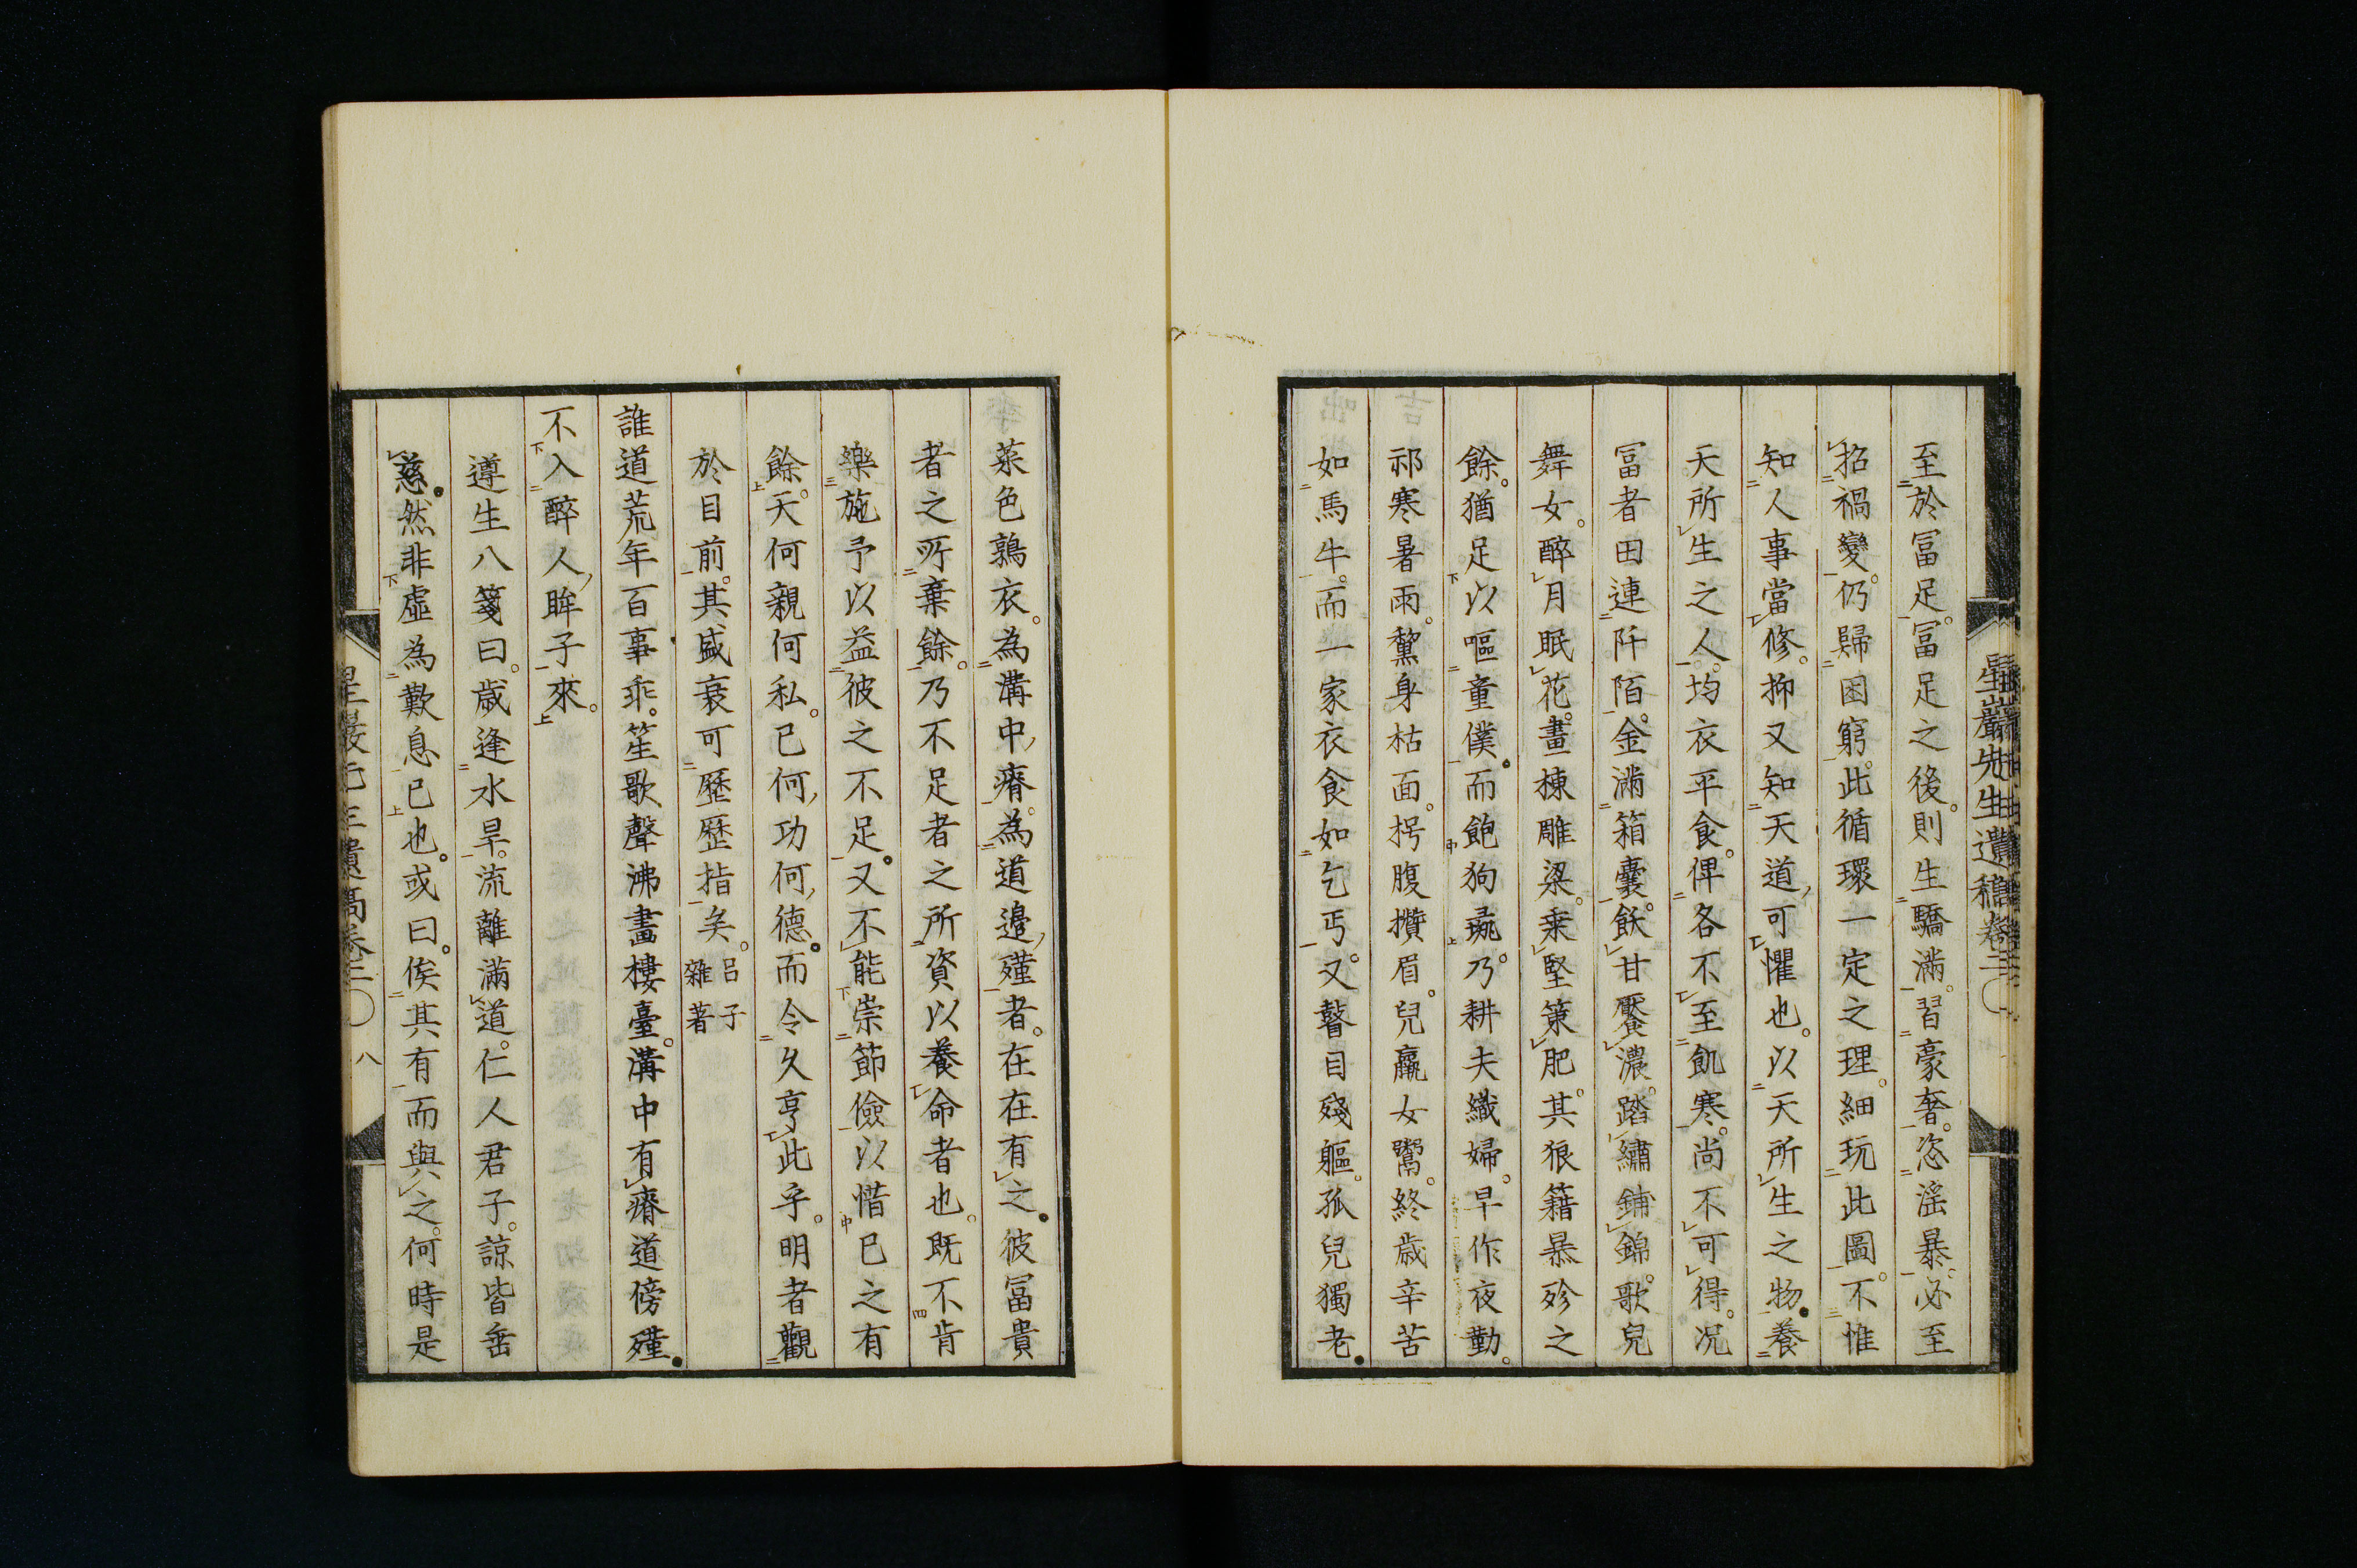 至於冨足。冨足之後。則生驕満。習豪奢。恣滛暴。必至
招禍變。仍歸困窮。此循環一定之理。細玩此圖。不惟
知人事當修。抑又知天道可懼也。以天所生之物。養
天所生之人。均衣平食。俾各不至飢寒。尚不可得。况
冨者田連阡陌。金満箱囊。飫甘饜濃。踏繡鋪錦。歌兒
舞女。醉月眠花。畫棟雕梁。乗堅策肥。其狼籍暴殄之
餘。猶足以嘔童僕。而飽狗彘。乃耕夫織婦。早作夜勤。
祁寒暑雨。黧身枯面。枵腹攢眉。兒羸女鬻。終歳辛苦
如馬牛。而一家衣食如乞丐。又瞽目殘軀。孤兒獨老。
菜色鶉衣。為溝中瘠。為道邉殣者。在在有之。彼冨貴
者之所棄餘。乃不足者之所資以養命者也。既不肯
樂施予以益彼之不足。又不能崇節儉以惜已之有
餘。天何親何私。已何功何德。而令久亨此乎。明者觀
於目前。其盛衰可歷歷指矣。呂子雜著
誰道荒年百事乖。笙歌聲沸畫樓臺。溝中有瘠道傍殣。
不入醉人眸子來。
遵生八箋曰。歳逢水旱。流離滿道。仁人君子。諒皆垂
慈。然非虚為歎息已也。或曰。俟其有而與之。何時是
星巖先生遺稿卷三
八